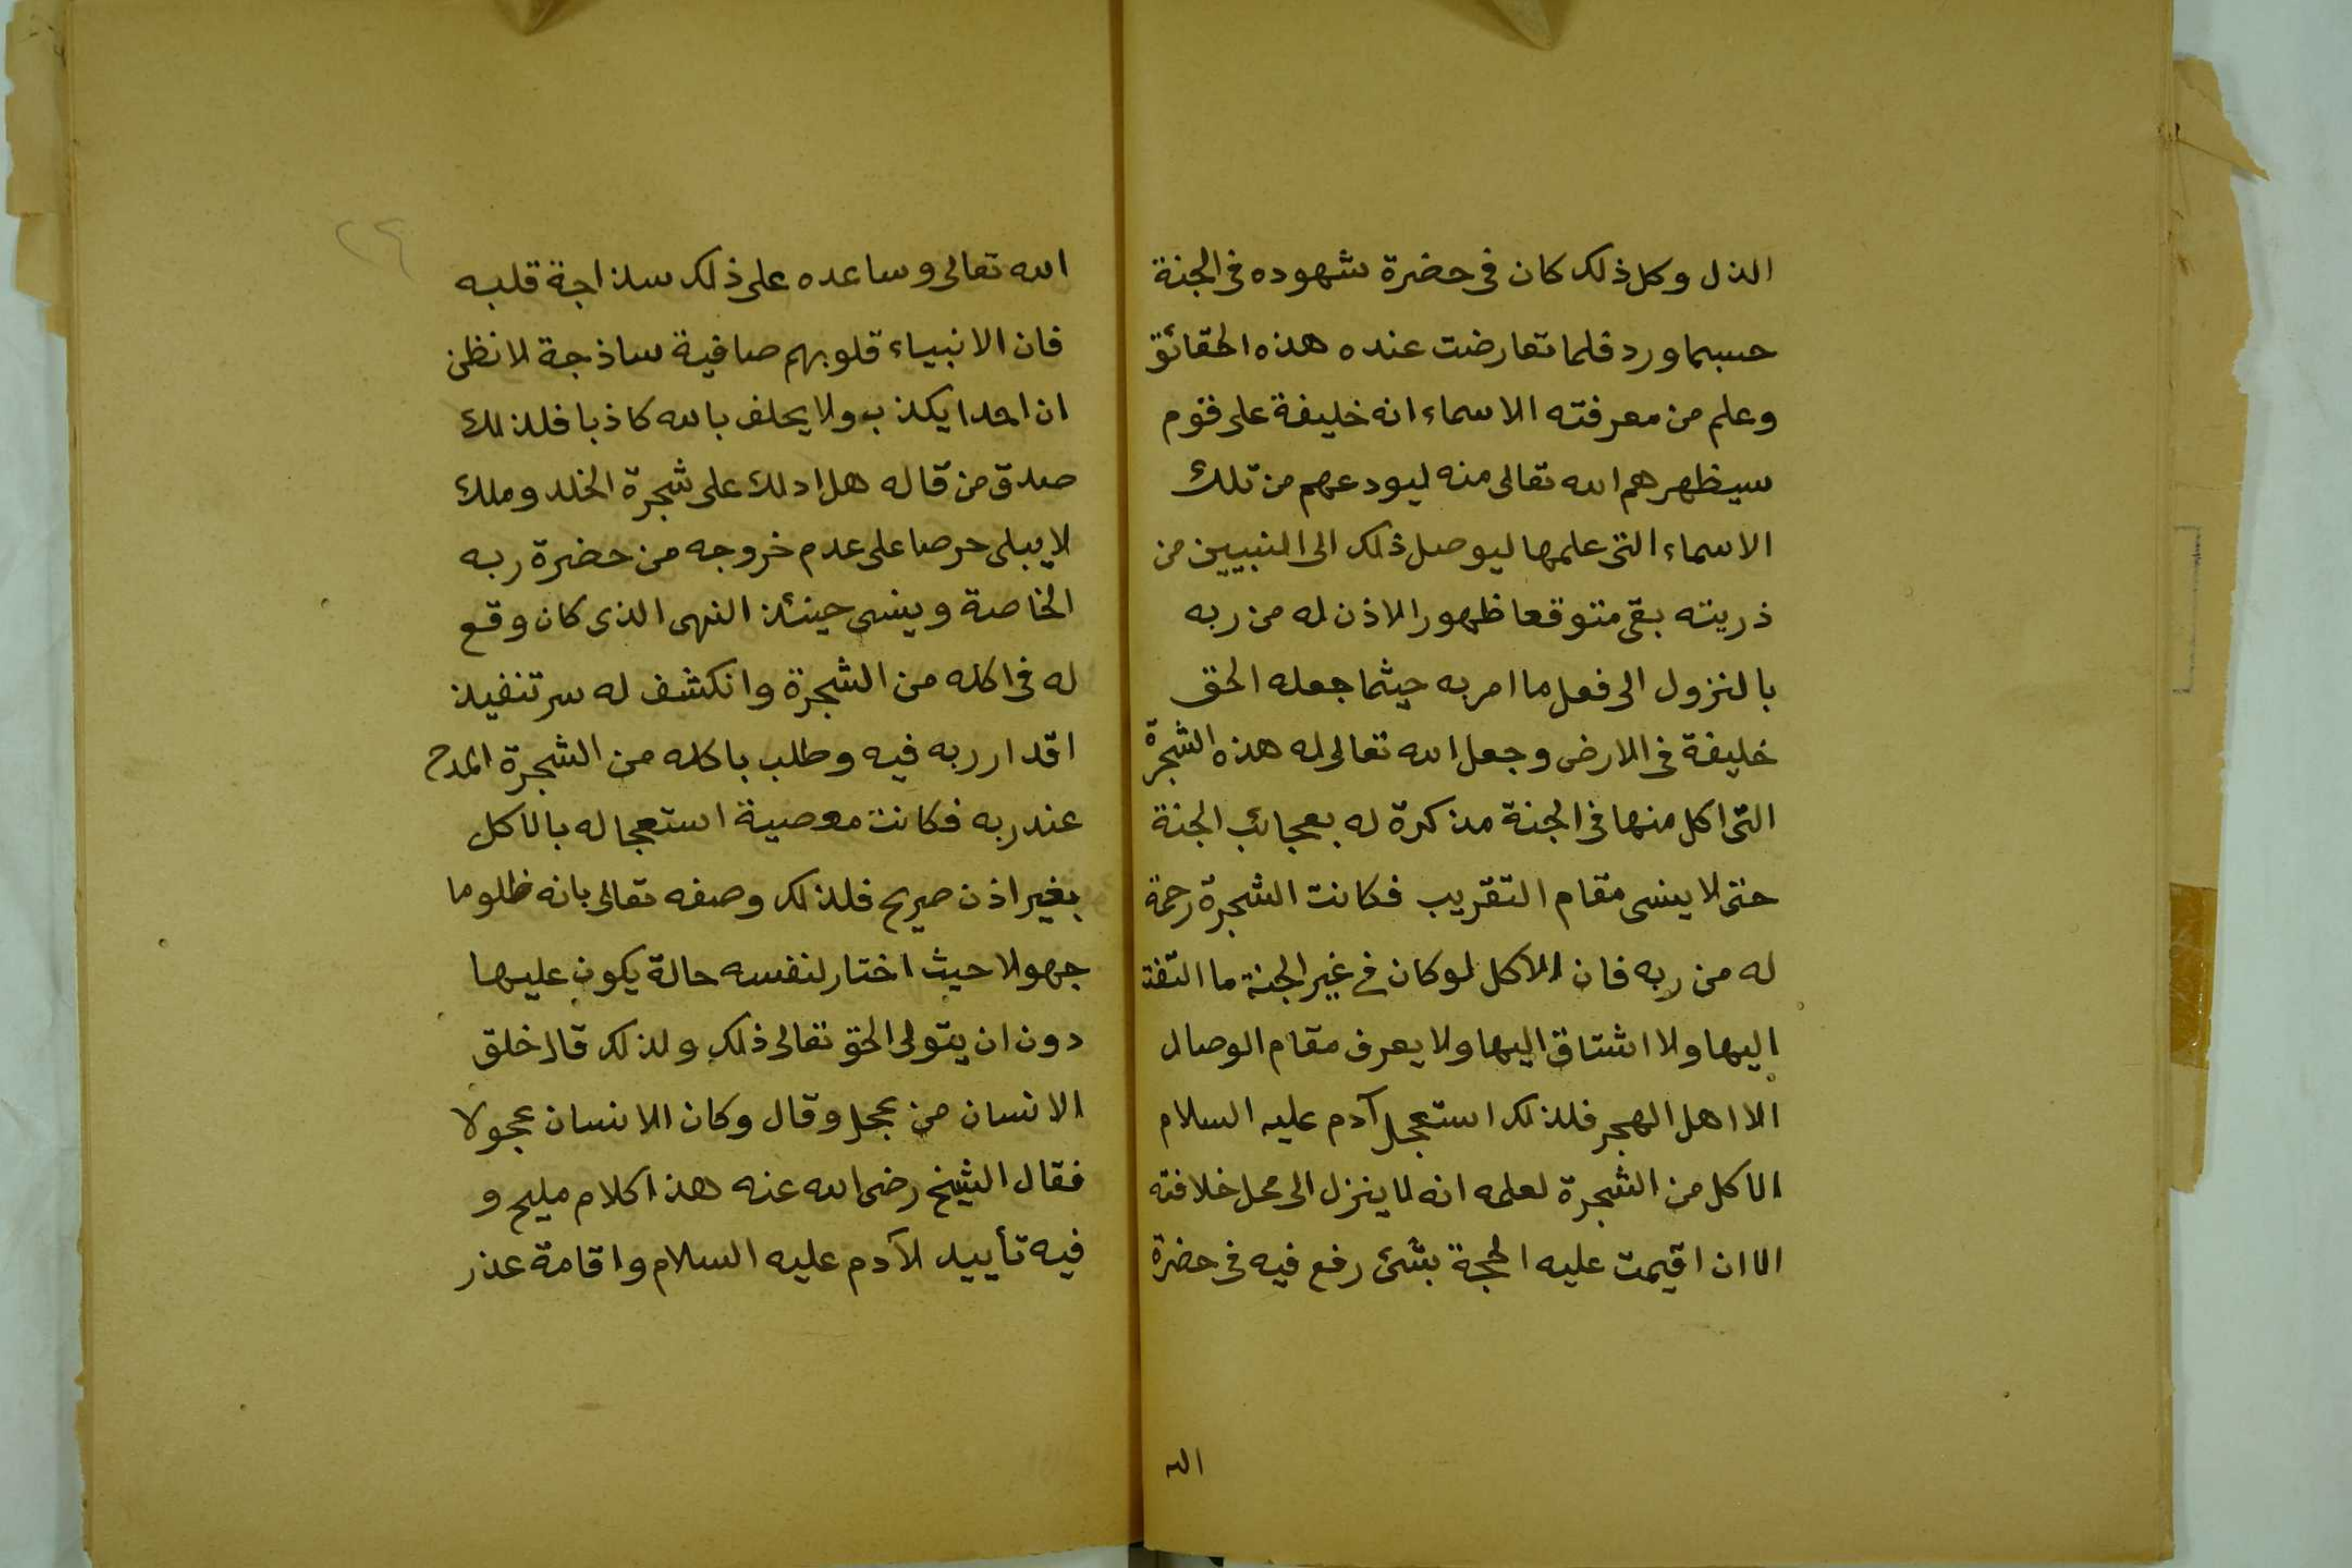 الذل وكل ذلك كان فى حضرة شهوده فى الجنة
حسبما ورد فلما تعارضت عنده هذه الحقائق
وعلم من معرفته الاسماء انه خليفة على قوم
سيظهرهم الله تعالى منه ليودعهم من تلك
الاسماء التى علمها ليوصل ذلك الى النبيين من
ذريته بقى متوقعا ظهور الاذن له من ربه
بالنزول الى فعل ما امر به حيثما جعله الحق
خليفة فى الارض وجعل الله تعالى له هذه الشجرة
التى اكل منها فى الجنة مذكرة له بعجائب الجنة
حتى لا ينسى مقام التقريب فكانت الشجرة رحمة
له من ربه فان الاكل لو كان فى غير الجنة ما التفت
اليها ولا اشتاق اليها ولا يعرف مقام الوصال
الا اهل الهجر فلذلك استعجل آدم عليه السلام
الاكل من الشجرة لعلمه انه لا ينزل الى محل خلافته
الا ان اقيمت عليه الحجة بشئ رفع فيه فى حضرة
الله
٢٩
الله تعالى وساعده على ذلك سذاجة قلبه
فان الانبياء قلوبهم صافية ساذجة لا نظن
ان احدا يكذب ولا يحلف بالله كاذبا فلذلك
صدق من قال له هل ادلك على شجرة الخلد وملك
لا يبلى حرصا على عدم خروجه من حضرة ربه
الخاصة وينسى حينئذ النهى الذى كان وقع
له فى اكله من الشجرة وانكشف له سر تنفيذ
اقدار ربه فيه وطلب باكله من الشجرة المدح
عند ربه فكانت معصية استعجاله بالاكل
بغير اذن صريح فلذلك وصفه تعالى بانه ظلوما
جهولا حيث اختار لنفسه حالة يكون عليها
دون ان يتولى الحق تعالى ذلك ولذلك قال خلق
الانسان من عجل وقال وكان الانسان عجولا
فقال الشيخ رضى الله عنه هذا كلام مليح و
فيه تأييد لآدم عليه السلام واقامة عذر